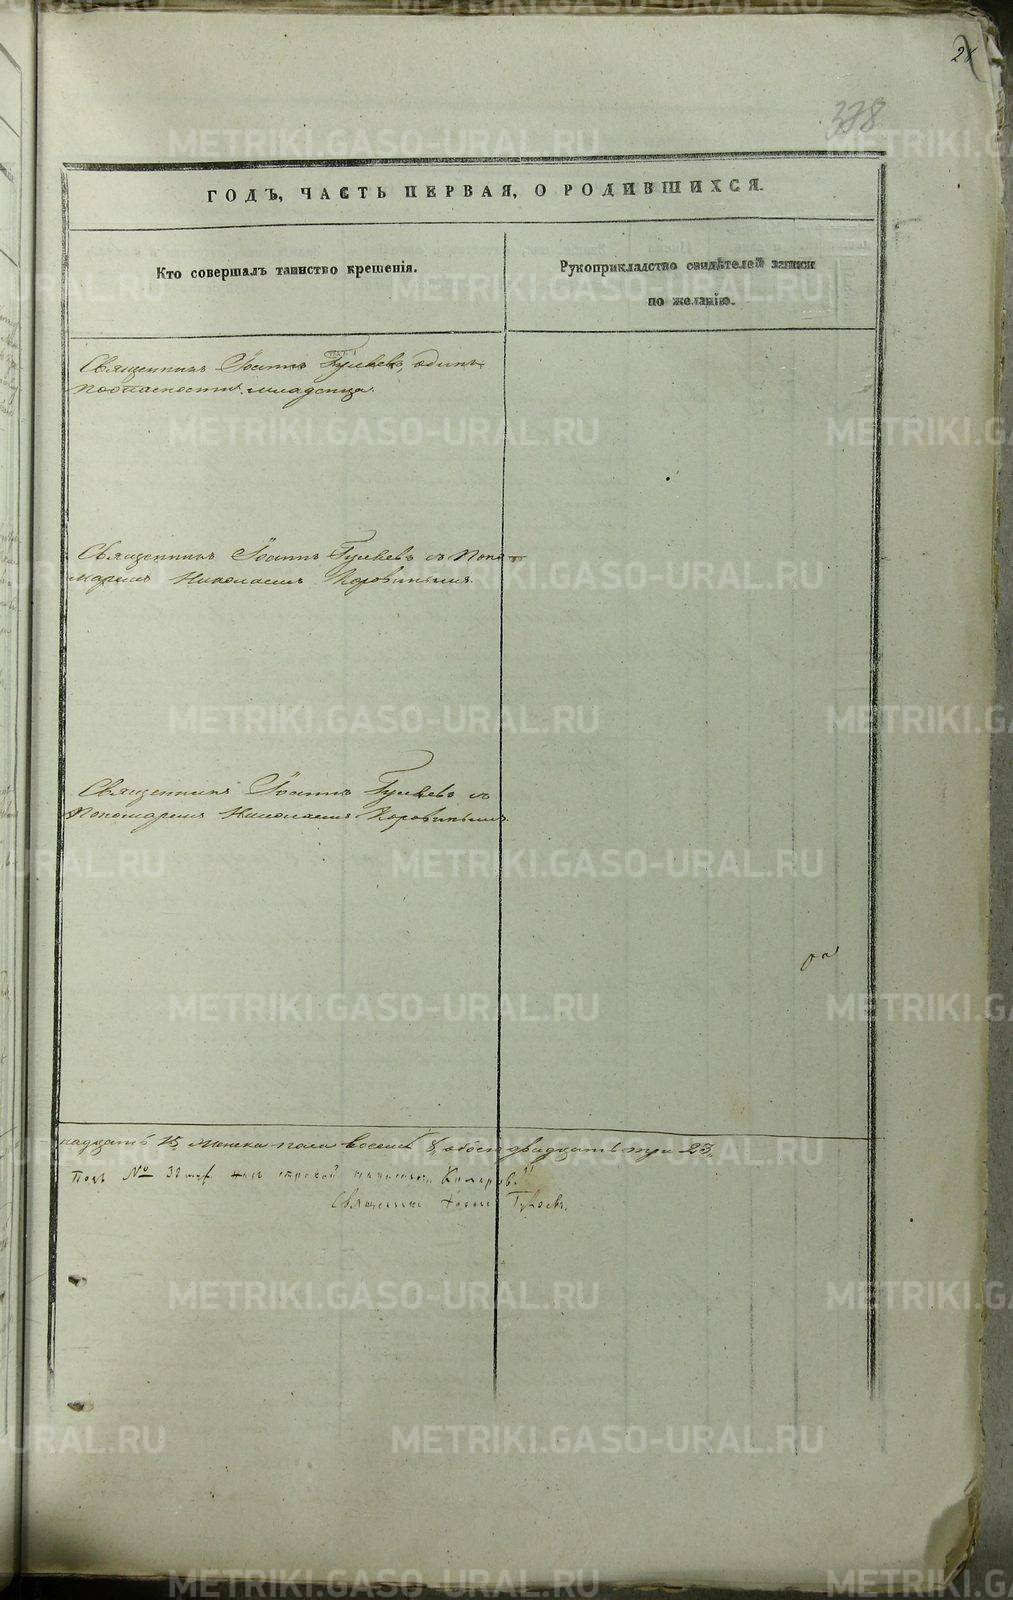 28
338
ГОДЪ, ЧАСТЬ ПЕРВАЯ, О РОДИВШИХСЯ.
Кто совершалъ таинство крещенія.
Рукоприкладство свидѣтелей записи
по желанію.
Священникъ Іоаннъ Гуляевъ, одинъ
поопасности младенца.
Священникъ Іоаннъ Гуляевъ съ Поно-
маремъ Николаемъ Коровинымъ.
Священникъ Іоаннъ Гуляевъ съ
Пономаремъ Николаемъ Коровинымъ.
надцать 15, женска пола восемь 8, обоего двадцать три 23,
Подъ № надъ строкой
Священникъ Іоаннъ Гуляевъ.
METRIKI.GASO-URAL.RU